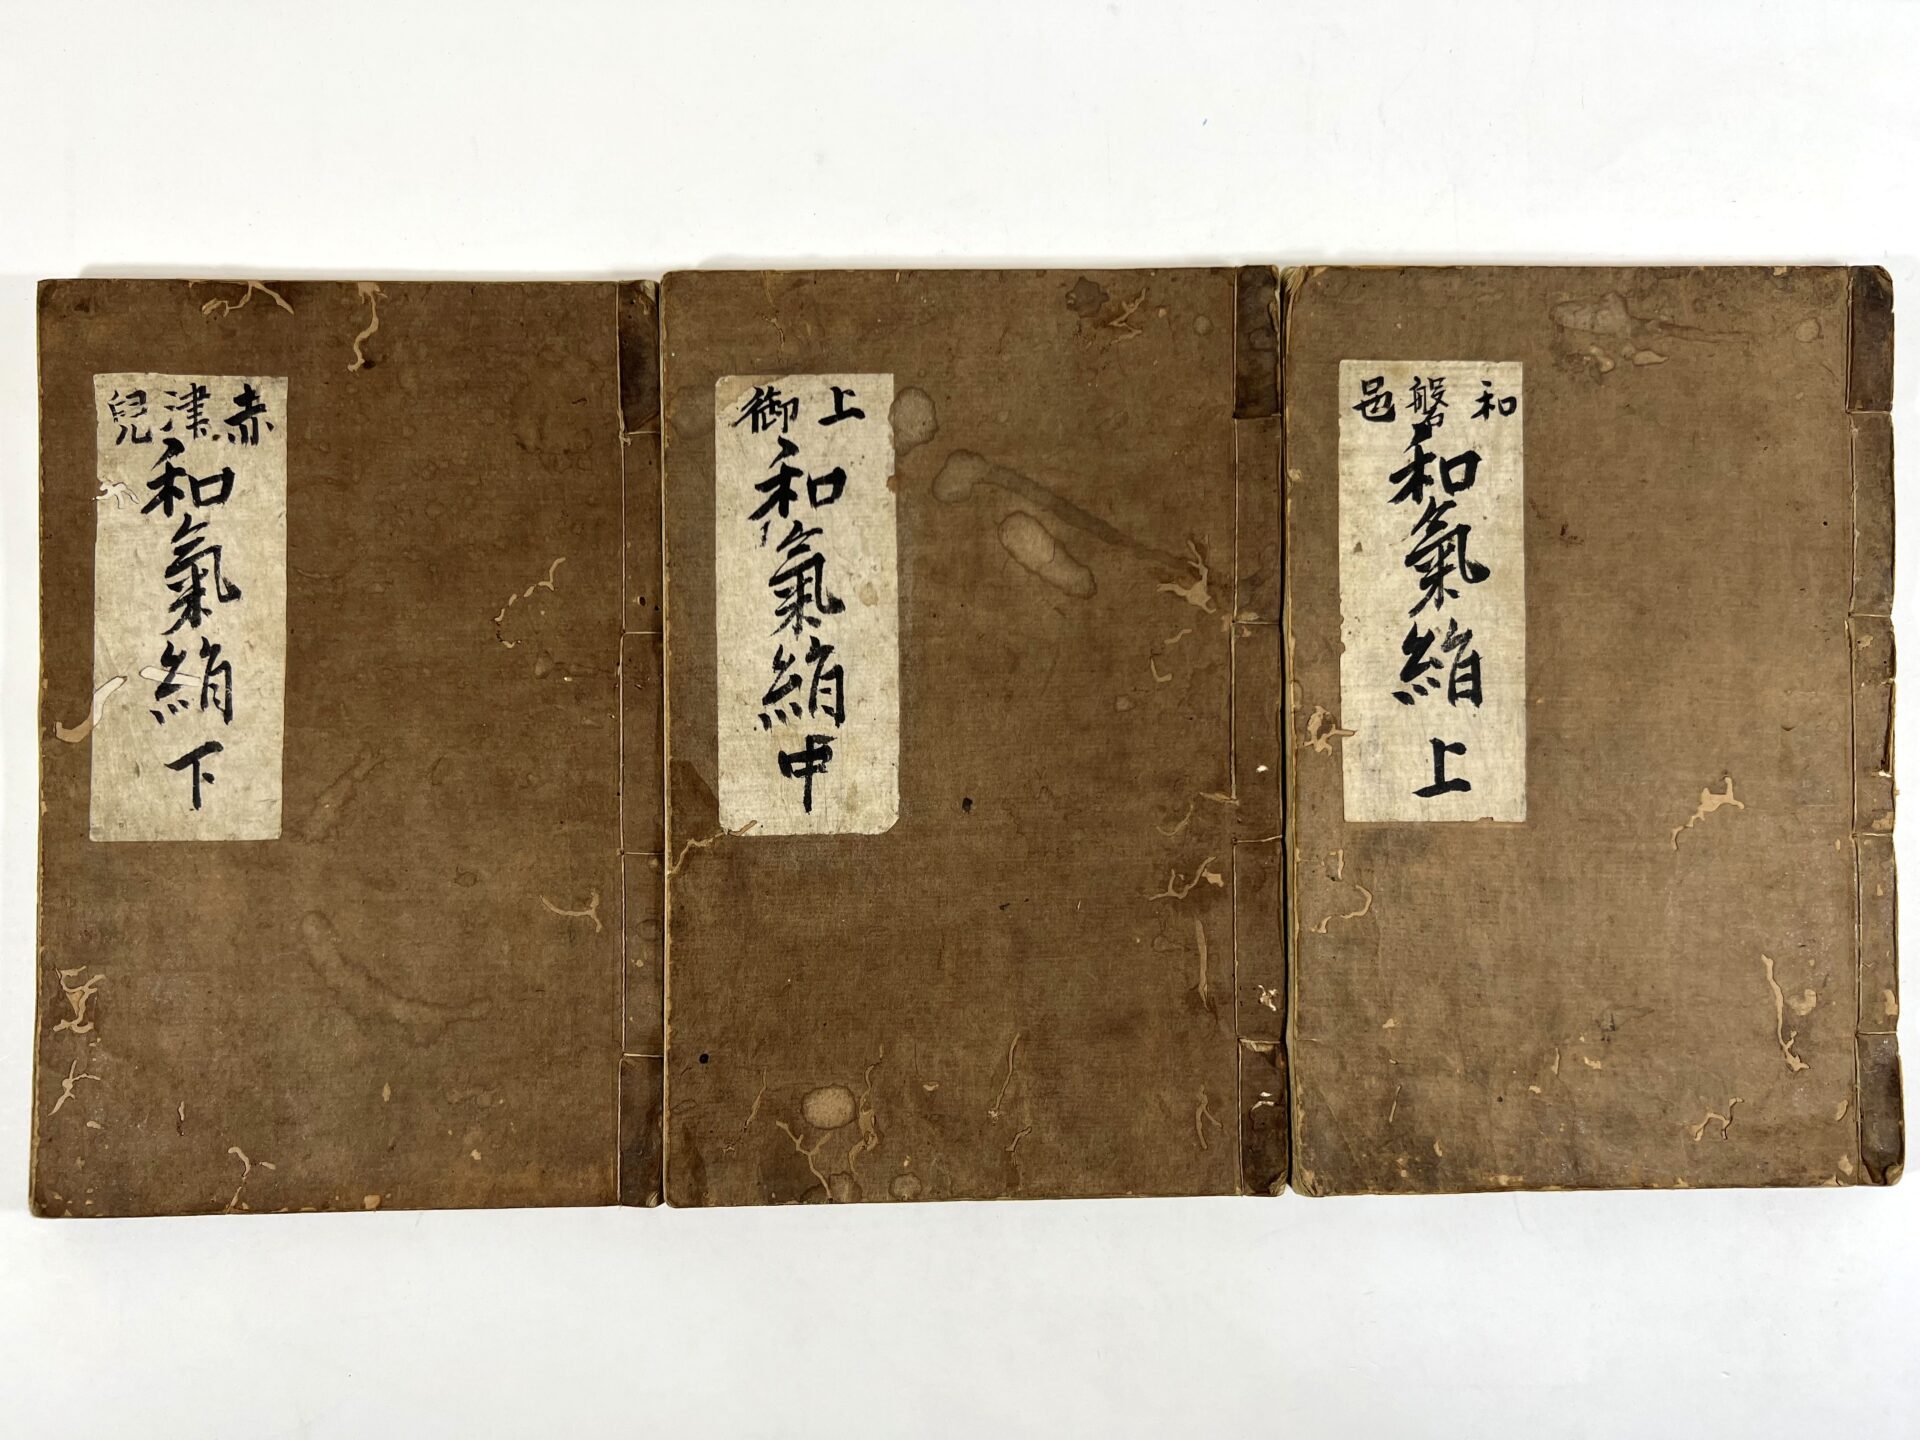 和磐邑
和氣絹上
上御
和氣絹中
赤津兒
和氣絹下